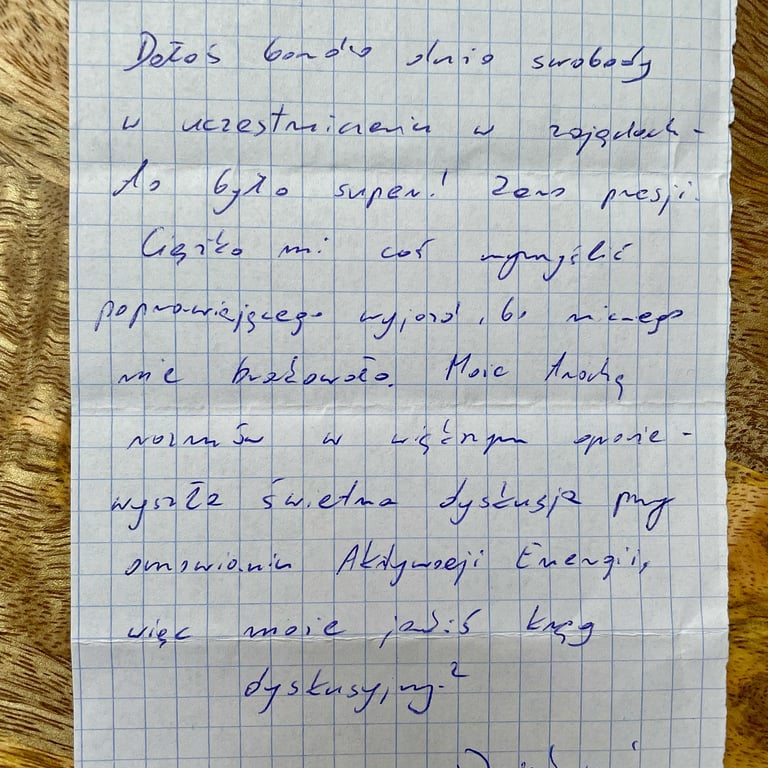 Dałaś bardzo dużo swobody
w uczestniczeniu w zajęciach -
to było super! Zero presji.
Ciężko mi coś wymyślić
poprawiającego wyjazd, bo niczego
nie brakowało. Może trochę
rozmów w większym gronie -
wyszła świetna dyskusja przy
omawianiu Aktywacji Energii,
więc może jakiś krąg
dyskusyjny?